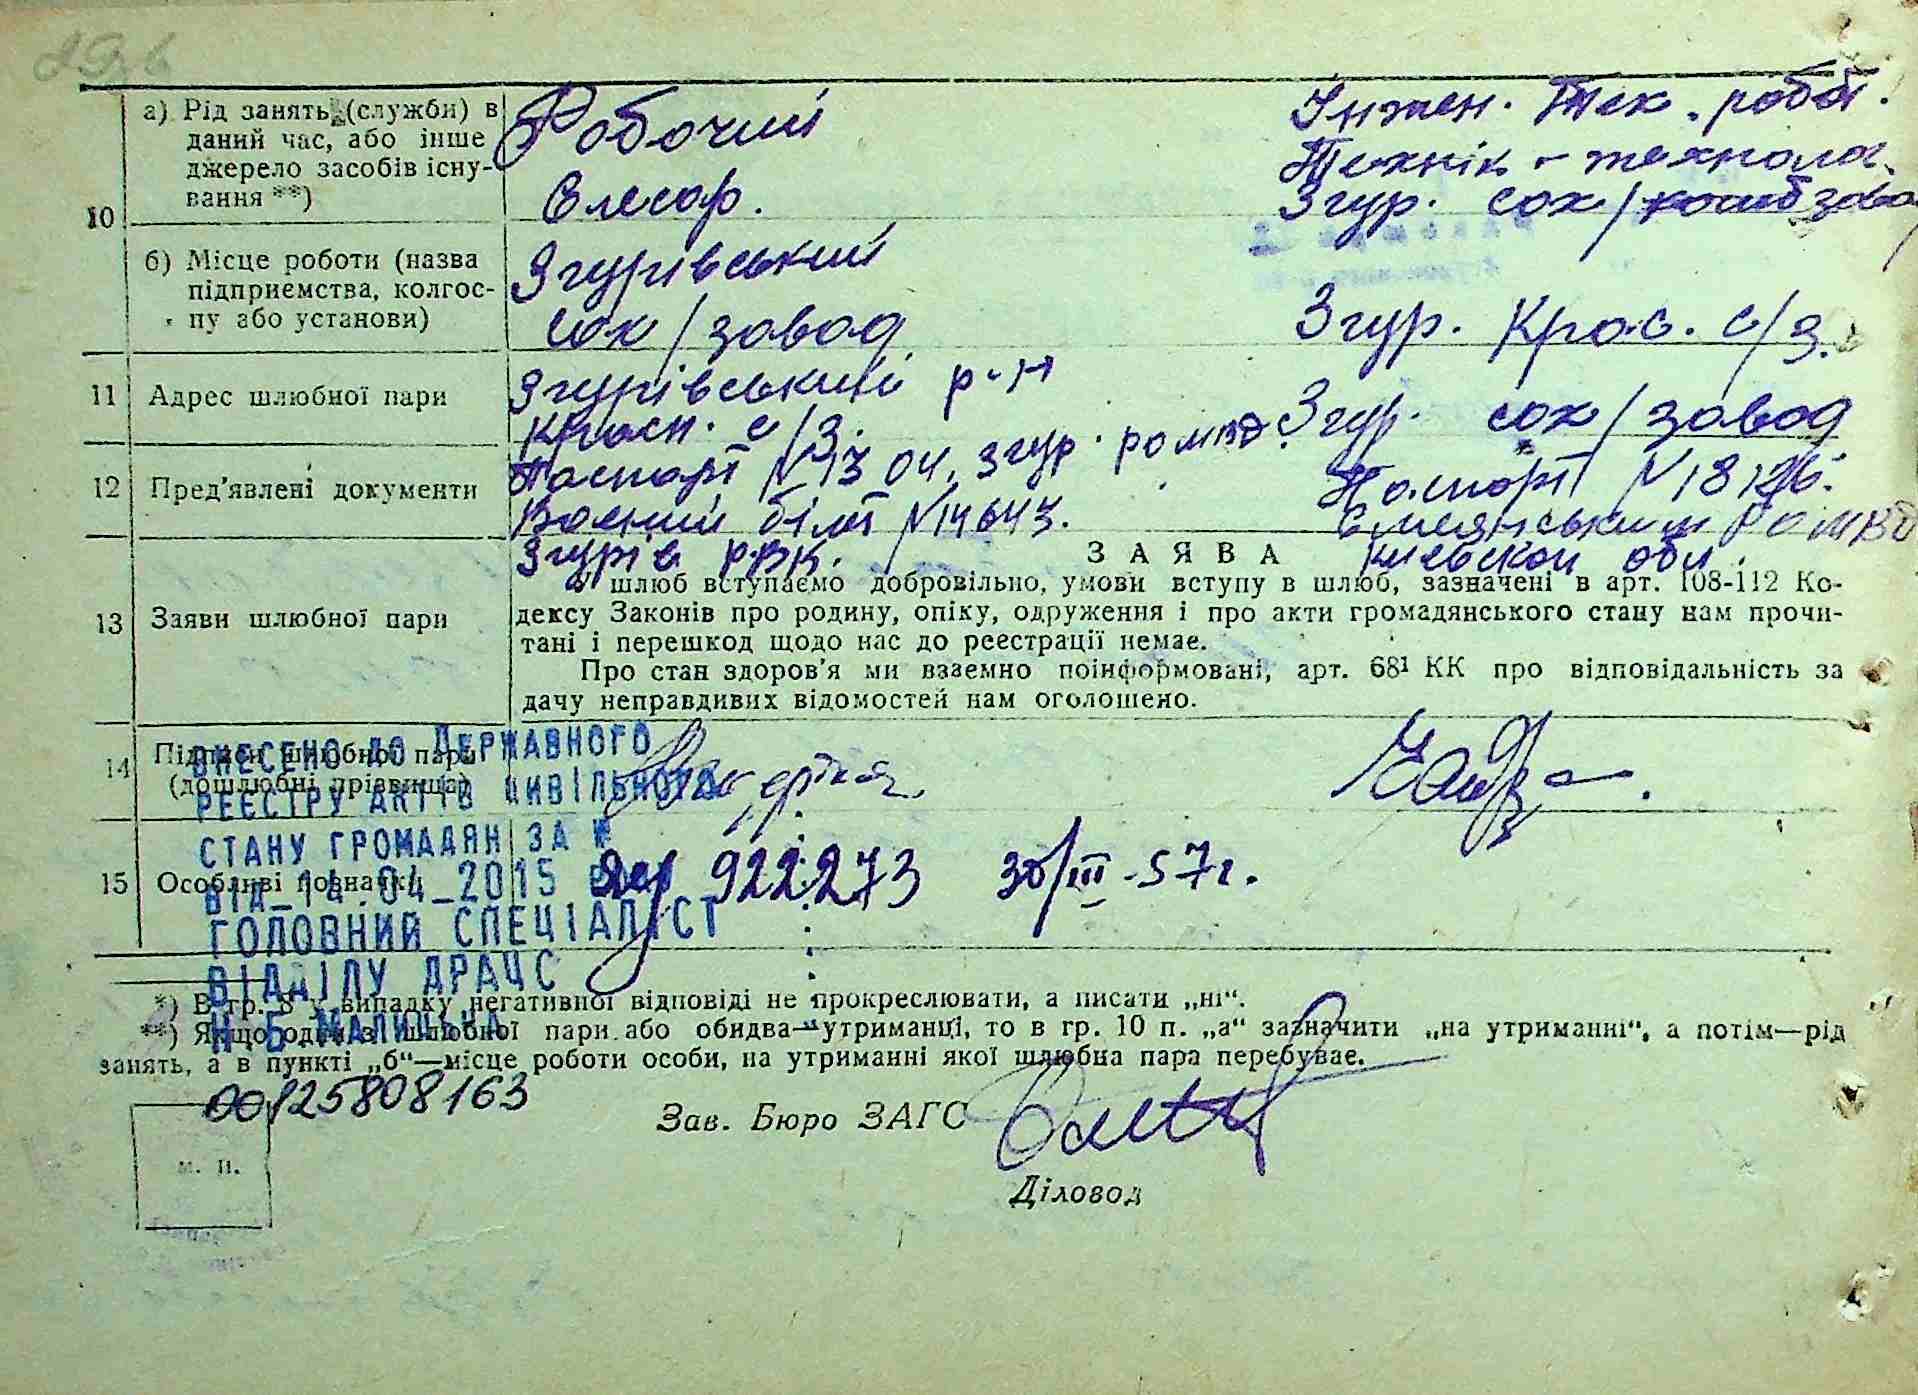 а) Рід занять (службы) в
даний час, або інше
джерело засобів існу-
вання **)
Робочий
Слесар.
Інжен. Тех. робіт.
Технік - технолог.
Згур. сох/комбзаво
10
б) Місце роботи (назва
підприємства, колгос-
пу або установи)
Згурівський
сох/завод
Згур. Крас. с/з.
11 Адрес шлюбної пари
Згурівський р-н
Красн. с/з.
Згур. сох/завод
12 Пред'явлені документи
Паспорт N 1304, Згур.
Воєний білет N 14643.
Згурів РВК.
Паспорт N 18126.
Киевской обл.
13 Заяви шлюбної пари
ЗАЯВА
У шлюб вступаємо добровільно, умови вступу в шлюб, зазначені в арт. 108-112 Ко-
дексу Законів про родину, опіку, одруження і про акти громадянського стану нам прочи-
тані і перешкод щодо нас до реєстрації немає.
Про стан здоров'я ми взаємно поінформовані, арт. 68¹ КК про відповідальність за
дачу неправдивих відомостей нам оголошено.
14 Підписи шлюбної пари
(дошлюбні прізвища)
15 Особливі позначки
922273 30/III-57г.
ВНЕСЕНО ДО ДЕРЖАВНОГО
РЕЄСТРУ АКТІВ ЦИВІЛЬНОГО
СТАНУ ГРОМАДЯН ЗА №
ВІД_14.04_2015
ГОЛОВНИЙ СПЕЦІАЛІСТ
ВІДДІЛУ ДРАЦС
Н.Б.
*) В гр. 8 у випадку негативної відповіді не прокреслювати, а писати „ні“.
**) Якщо один з шлюбної пари або обидва—утриманці, то в гр. 10 п. „а“ зазначити „на утриманні“, а потім—рід
занять, а в пункті „б“—місце роботи особи, на утриманні якої шлюбна пара перебуває.
00125808163
Зав. Бюро ЗАГС
м. п.
Діловод